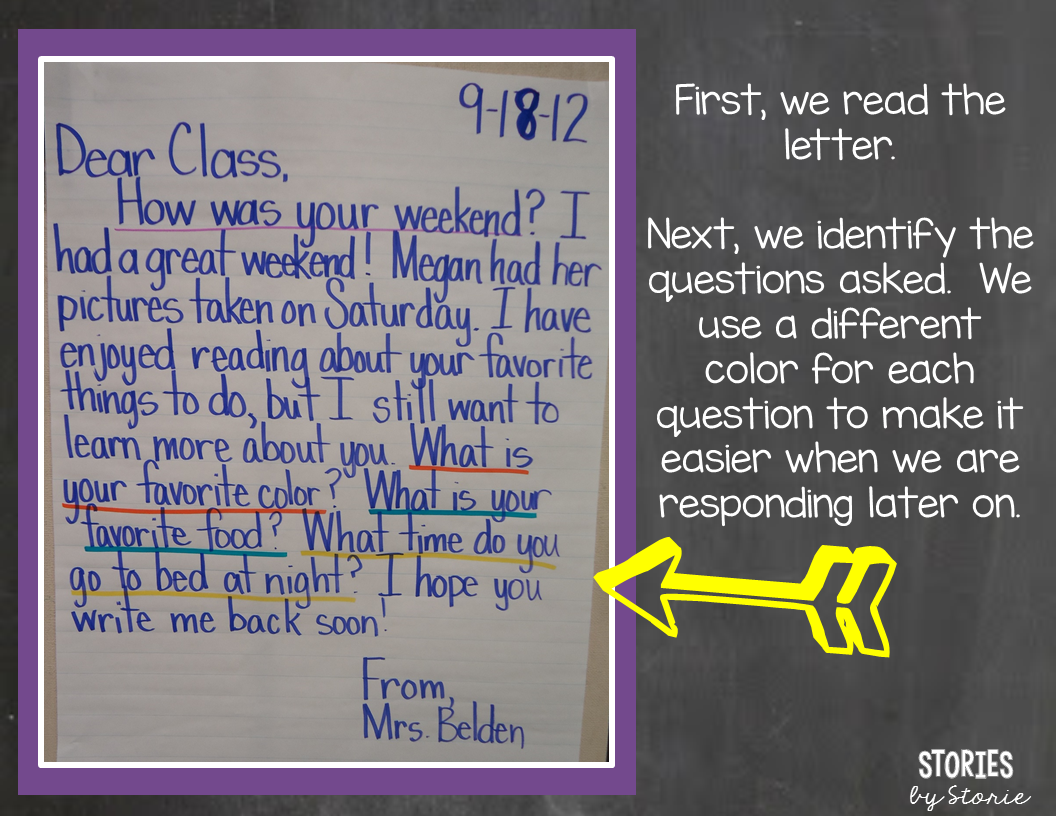 9-18-12
Dear Class,
How was your weekend? I
had a great weekend! Megan had her
pictures taken on Saturday. I have
enjoyed reading about your favorite
things to do, but I still want to
learn more about you. What is
your favorite color? What is your
favorite food? What time do you
go to bed at night? I hope you
write me back soon!
From,
Mrs. Belden
First, we read the
letter.
Next, we identify the
questions asked. We
use a different
color for each
question to make it
easier when we are
responding later on.
STORIES
by Storie